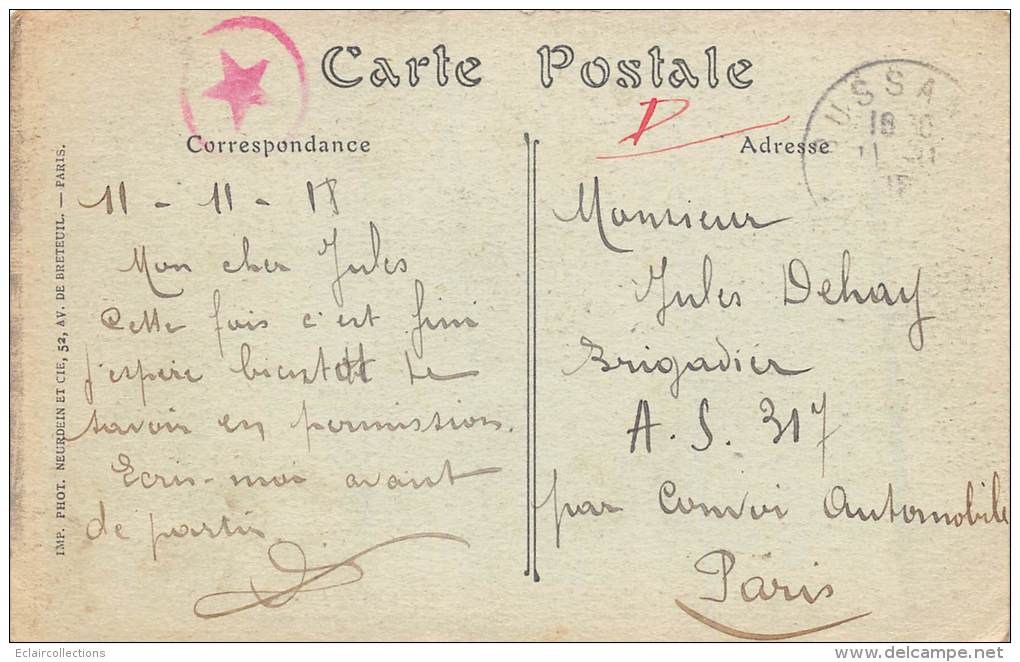 Carte Postale
Correspondance
Adresse
USSA
11 - 11 - 18
Mon cher Jules
Cette fois c'est fini
j'espère bientôt te
savoir en permission.
Ecris-moi avant
de partir.
Monsieur
Jules Dehay
Brigadier
A. S. 317
par Convoi Automobile
Paris
IMP. PHOT. NEURDEIN ET CIE, 52, AV. DE BRETEUIL. — PARIS.
Eclaircollections
www.delcampe.net